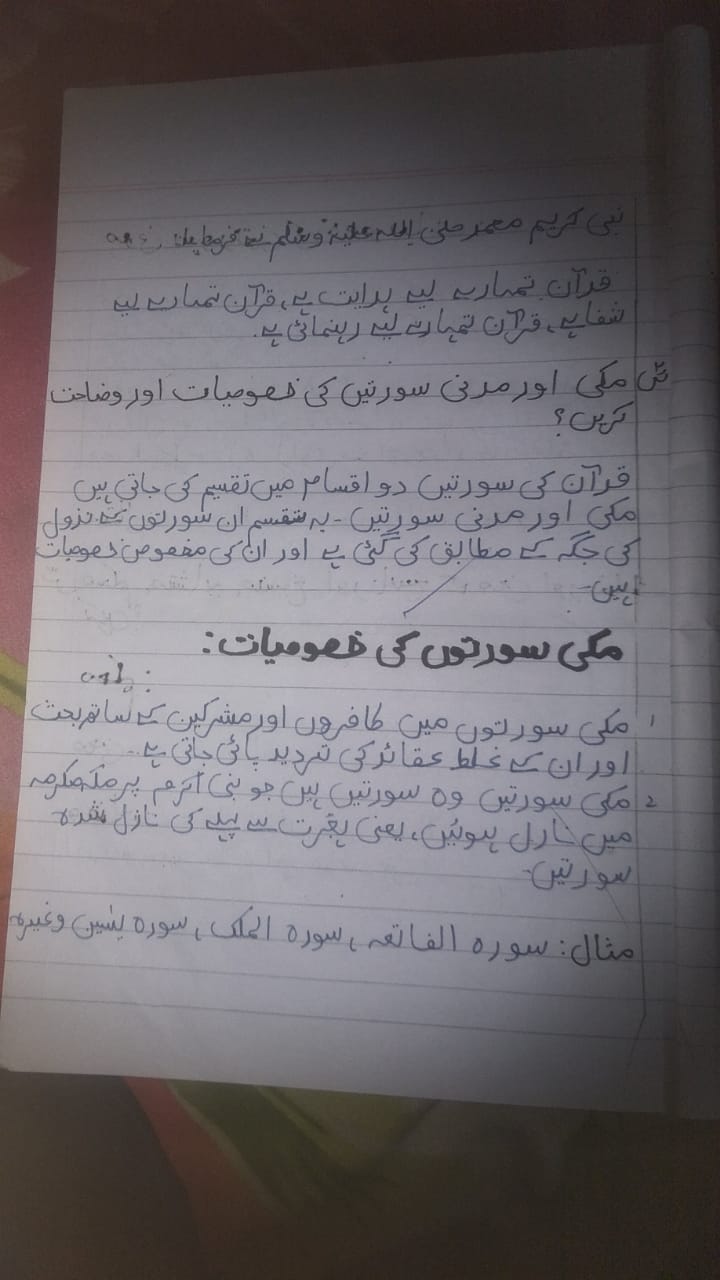 نبی کریم محمد صلی اللہ علیہ وسلم نے فرمایا
قرآن تمہارے لیے ہدایت ہے، قرآن تمہارے لیے
شفا ہے، قرآن تمہارے لیے رہنمائی ہے۔
س مکی اور مدنی سورتیں کی خصوصیات اور وضاحت
کریں؟
قرآن کی سورتیں دو اقسام میں تقسیم کی جاتی ہیں
مکی اور مدنی سورتیں - یہ تقسیم ان سورتوں کے نزول
کی جگہ کے مطابق کی گئی ہے اور ان کی مخصوص خصوصیات
ہیں-
مکی سورتوں کی خصوصیات:
1 مکی سورتوں میں کافروں اور مشرکین کے ساتھ بحث
اور ان کے غلط عقائد کی تردید پائی جاتی ہے۔
2 مکی سورتیں وہ سورتیں ہیں جو نبی اکرم پر مکہ مکرمہ
میں نازل ہوئیں، یعنی ہجرت سے پہلے کی نازل شدہ
سورتیں-
مثال: سورہ الفاتحہ، سورہ الملک، سورہ یٰسین وغیرہ